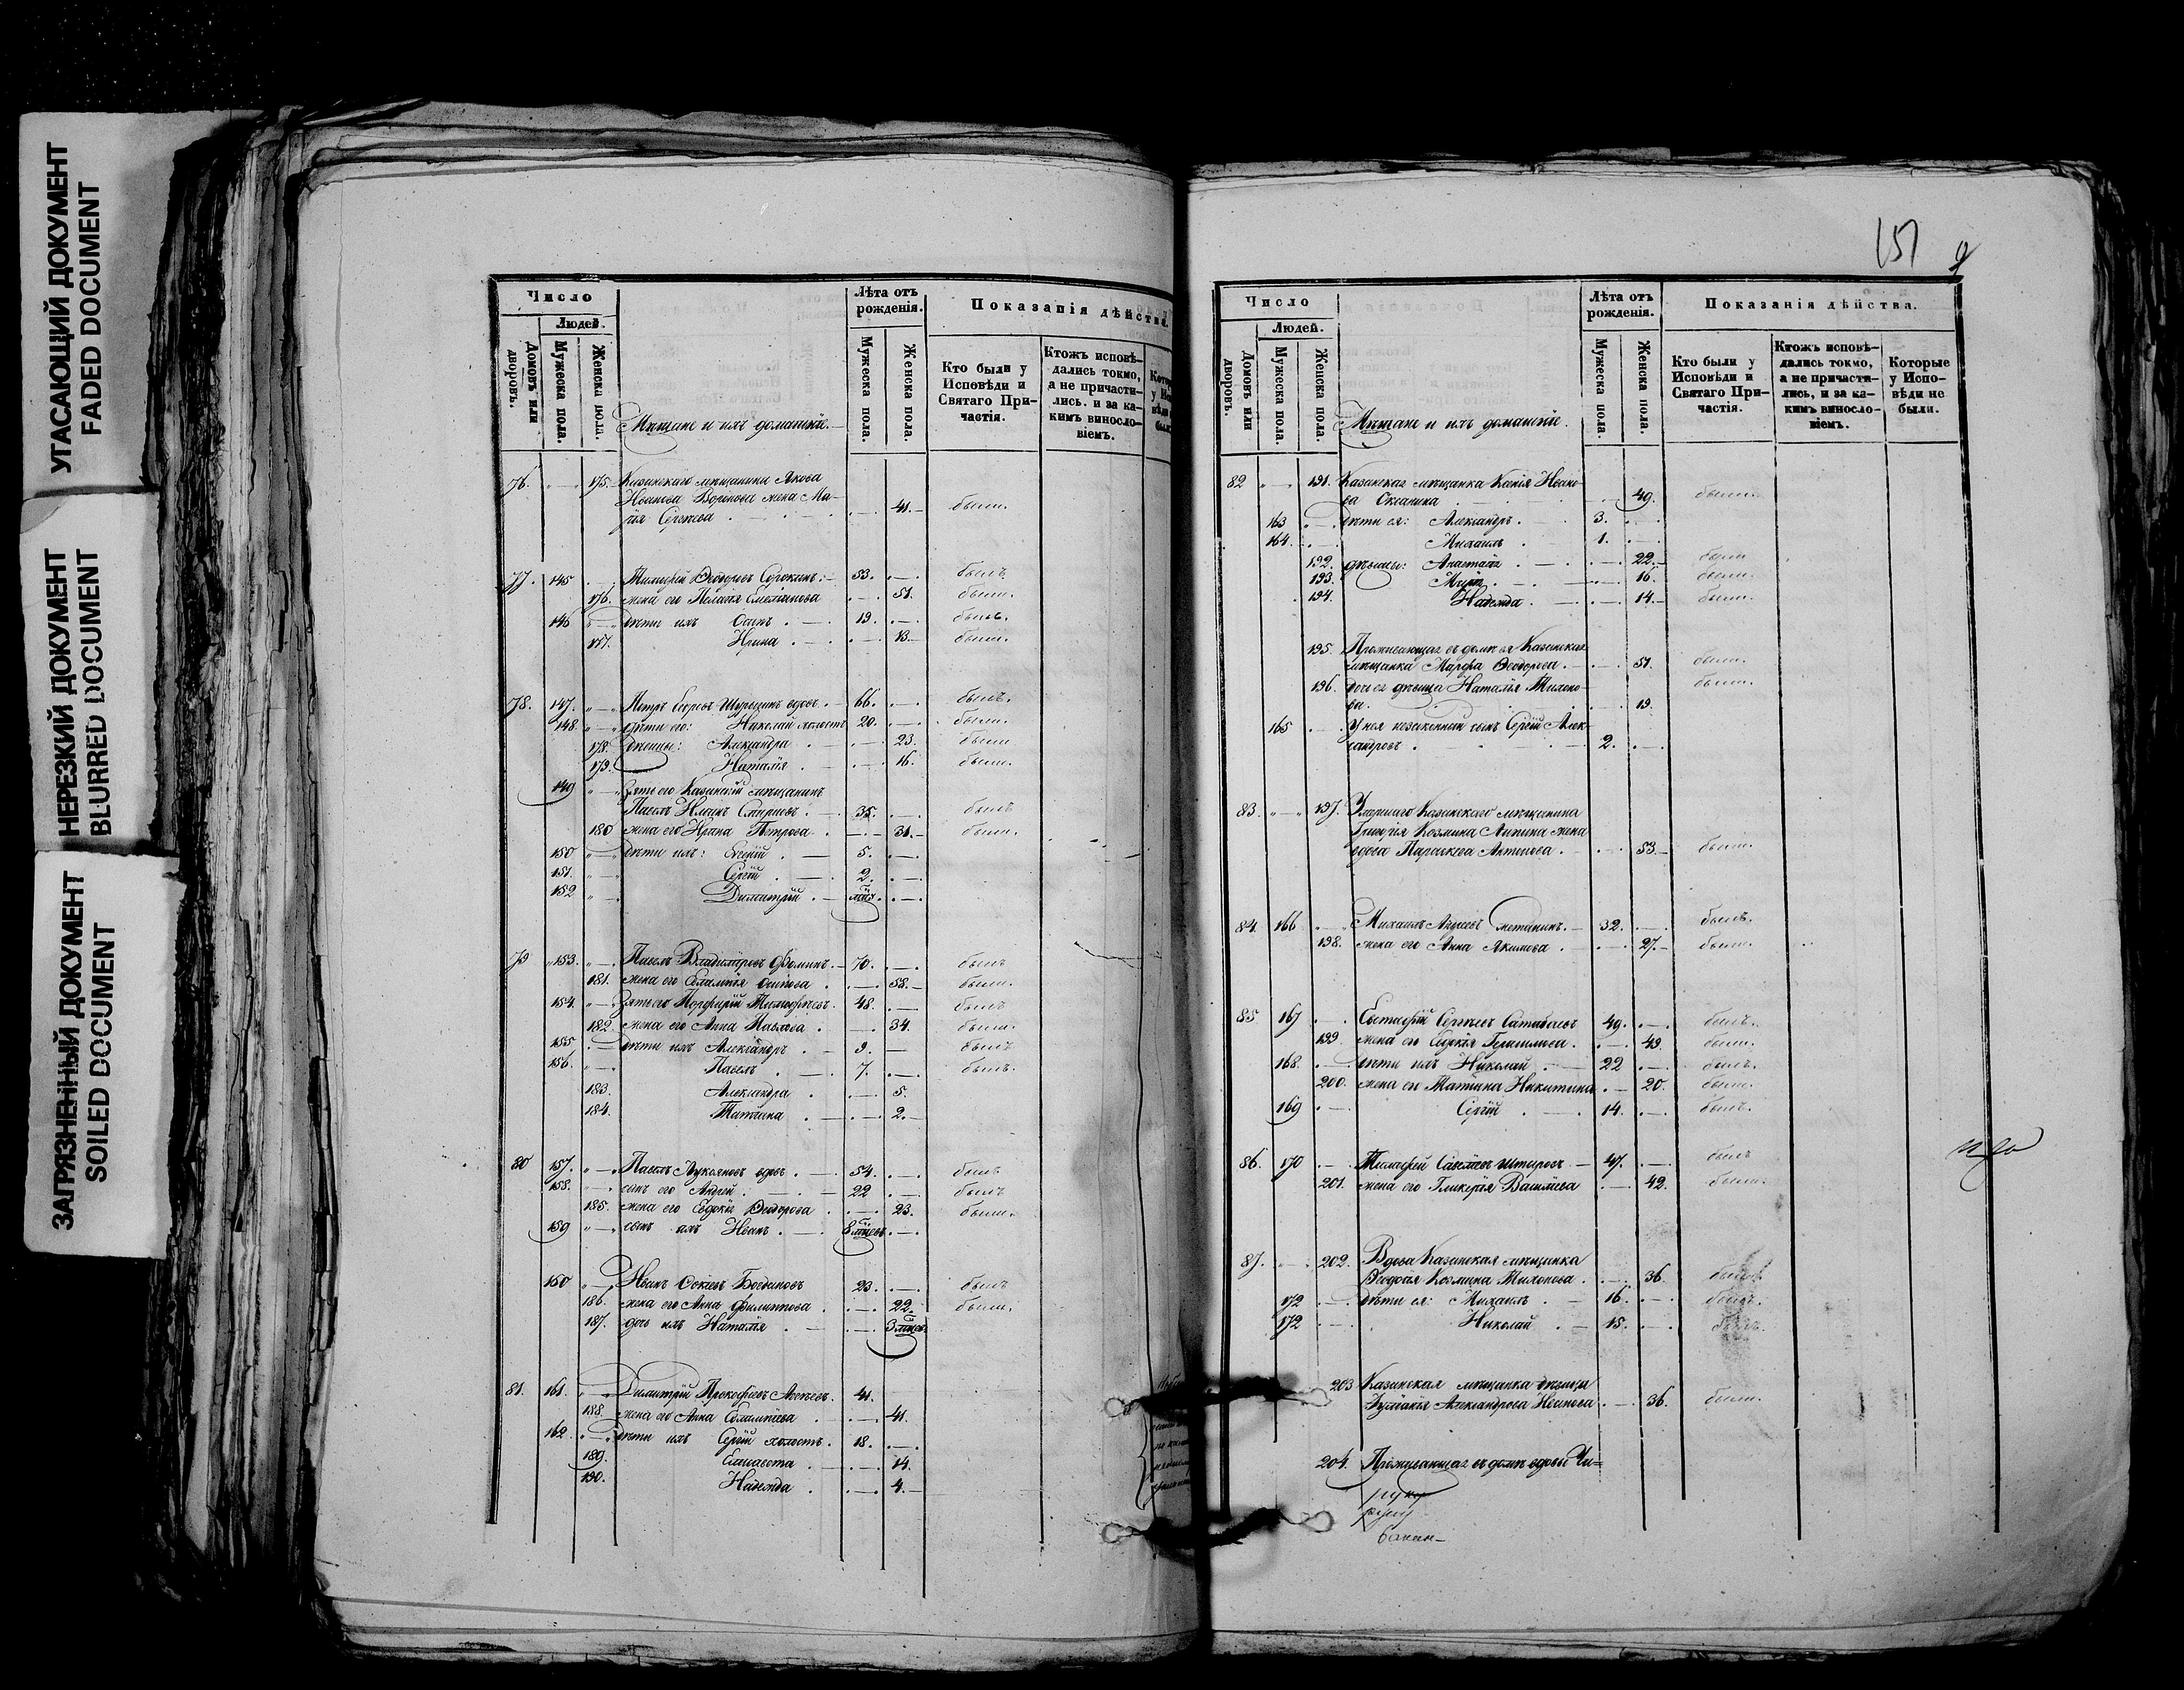 УГАСАЮЩИЙ ДОКУМЕНТ
FADED DOCUMENT
НЕРЕЗКИЙ ДОКУМЕНТ
BLURRED DOCUMENT
ЗАГРЯЗНЕННЫЙ ДОКУМЕНТ
SOILED DOCUMENT
Число
Людей.
Домовъ или дворовъ.
Мужеска пола.
Женска пола.
Мѣщане и ихъ домашніе.
Лѣта отъ рожденія.
Мужеска пола.
Женска пола.
Показанія дѣйства.
Кто были у Исповѣди и Святаго Причастія.
Ктожъ исповѣдались токмо, а не причастились, и за какимъ винословіемъ.
76. 175. Казанскаго мѣщанина Якова
Иванова Воронова жена Ма-
рія Сергѣева 41. были.
77. 145 Тимофей Ѳеодоровъ Сорокинъ 53. былъ
176. жена его Пелагія Емеліанова 51. были.
146 дѣти ихъ 19. былъ.
177. Ирина 13 были.
78. 147. Петръ вдовъ 66. былъ.
148. дѣти его: Николай холостъ 20. были.
178. дѣвицы: Александра 23. были
179. Наталія 16. были.
149 Зять его Казанскій мѣщанинъ
Павелъ 35. былъ
180 жена его Ирина Петрова 31. были.
150 дѣти ихъ: Евгеній 5.
151. Сергій 2.
152 Димитрій
79 153. Павелъ Владиміровъ Ѳоминъ 70. былъ
181. жена его Евлампія Осипова 58. были.
154. Зять его Порфирій Тимофѣевъ 48. былъ
182. жена его Анна Павлова 34. были.
155 дѣти ихъ Александръ 9. былъ
156. Павелъ 7. былъ.
183. Александра 5.
184. Татіана 2.
80 157. Павелъ Лукояновъ вдовъ 54. былъ
158. сынъ его Андрей 22 былъ
185. жена его Евдокія Ѳеодорова 23. были.
159 сынъ ихъ Иванъ
150 Иванъ Богдановъ 23. былъ
186. жена его Анна Филиппова 22. были.
187. дочь ихъ Наталія
81. 161. Димитрій Прокофьевъ 41.
188. жена его Анна Евлампіева 41.
162. дѣти ихъ Сергій холостъ 18.
189. Елисавета 14.
190. Надежда 4.
151
Число
Людей.
Домовъ или дворовъ.
Мужеска пола.
Женска пола.
Мѣщане и ихъ домашніе.
Лѣта отъ рожденія.
Мужеска пола.
Женска пола.
Показанія дѣйства.
Кто были у Исповѣди и Святаго Причастія.
Ктожъ исповѣдались токмо, а не причастились, и за какимъ винословіемъ.
Которые у Исповѣди не были.
82 191. Казанская мѣщанка Ксенія Ивано-
ва 49. были.
163 дѣти ея: Александръ 3.
164. Михаилъ 1.
192. дѣвицы: Анастасія 22. были
193. Марія 16. были.
194. Надежда 14. были.
195. Проживающая въ домѣ ея Казанская
мѣщанка Марфа Ѳеодорова 51. были.
196. дочь ея дѣвица Наталія Тихоно-
ва. 19. были.
165 У нея незаконный сынъ Сергій Алек-
сандровъ 2.
83. 197. Умершаго Казанскаго мѣщанина
Григорія Козмина жена
вдова Параскева 53. были.
84. 166 Михаилъ Андреевъ 32. былъ.
198. жена его Анна Якимова 27. были.
85 167 Евстафій Сергѣевъ 49. былъ.
199. жена его Евдокія Герасимова 49. были.
168. дѣти ихъ Николай 22 былъ.
200. жена его Татіана Никитина 20. были.
169 Сергій 14. былъ.
86. 170 Тимофей Савельевъ 47. былъ
201. жена его Гликерія Васильева 42. были.
87. 202. Вдова Казанская мѣщанка
Ѳеодосія Козмина Тихонова 36. были.
172 дѣти ея: Михаилъ 16. былъ.
172 Николай 15. былъ.
203 Казанская мѣщанка дѣвица
Александрова Иванова 36. были.
204. Проживающая въ домѣ вдовы